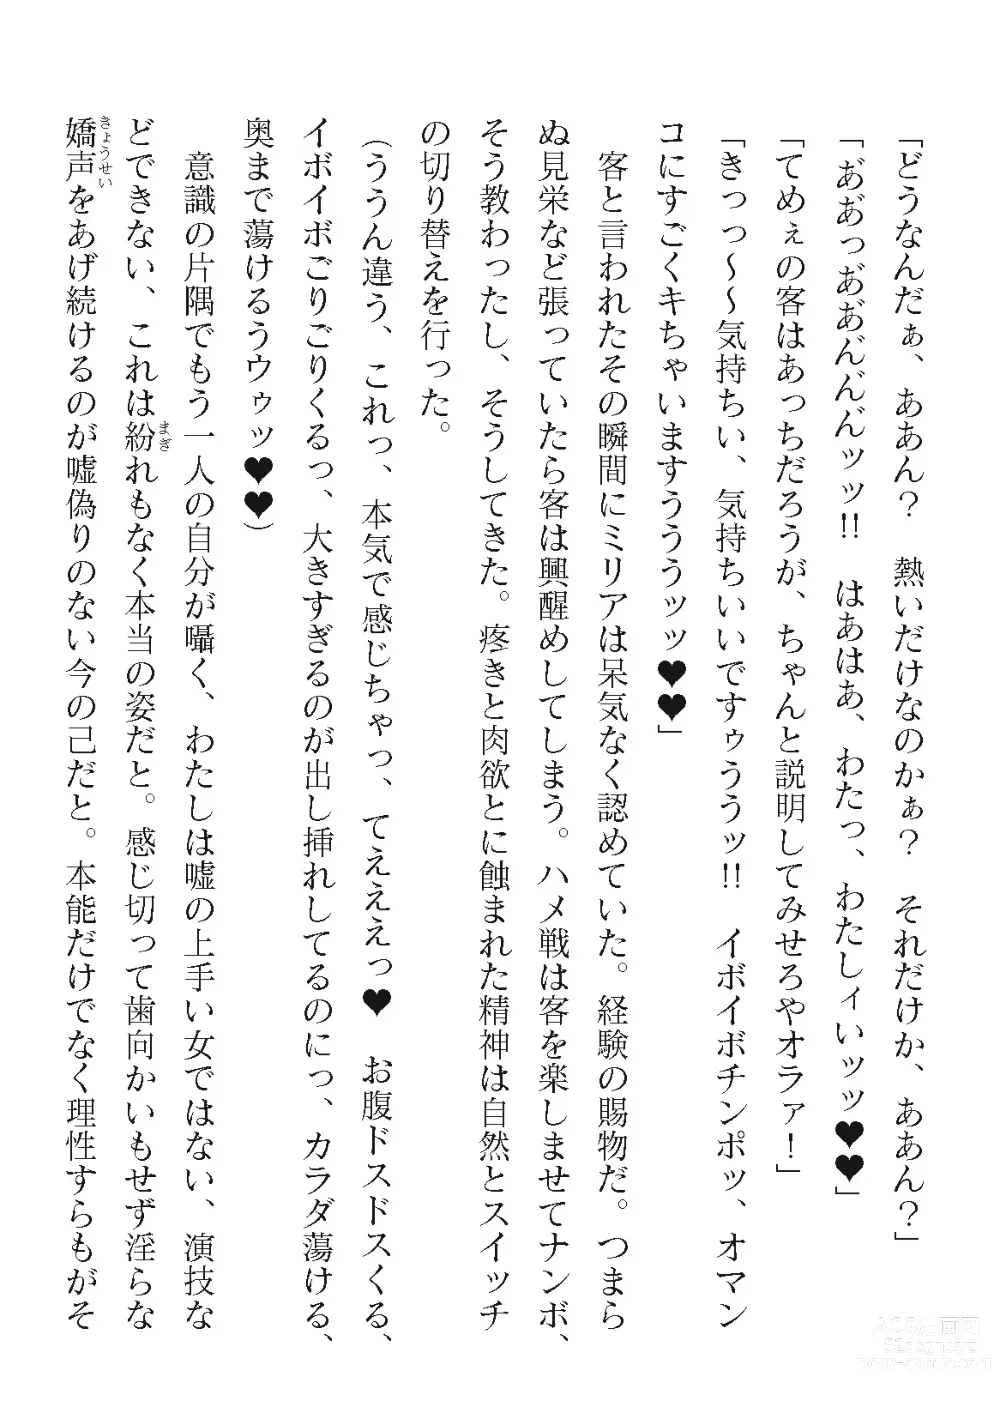 「どうなんだぁ、ああん？　熱いだけなのかぁ？　それだけか、ああん？」
「あ゙あ゙っあ゙あ゙ん゙ん゙ん゙ッッ!!　はあはあ、わたっ、わたしィいッッ♥♥」
「てめぇの客はあっちだろうが、ちゃんと説明してみせろやオラァ！」
「きっっ～～気持ちい、気持ちいいですゥううッ!!　イボイボチンポッ、オマン
コにすごくキちゃいますうううッッ♥♥」
　客と言われたその瞬間にミリアは呆気なく認めていた。経験の賜物だ。つまら
ぬ見栄など張っていたら客は興醒めしてしまう。ハメ戦は客を楽しませてナンボ、
そう教わったし、そうしてきた。疼きと肉欲とに蝕まれた精神は自然とスイッチ
の切り替えを行った。
（ううん違う、これっ、本気で感じちゃっ、てえええっ♥　お腹ドスドスくる、
イボイボごりごりくるっ、大きすぎるのが出し挿れしてるのにっ、カラダ蕩ける、
奥まで蕩けるうウゥッ♥♥）
　意識の片隅でもう一人の自分が囁く、わたしは嘘の上手い女ではない、演技な
どできない、これは紛れもなく本当の姿だと。感じ切って歯向かいもせず淫らな
嬌声をあげ続けるのが嘘偽りのない今の己だと。本能だけでなく理性すらもがそ
まぎ
きょうせい